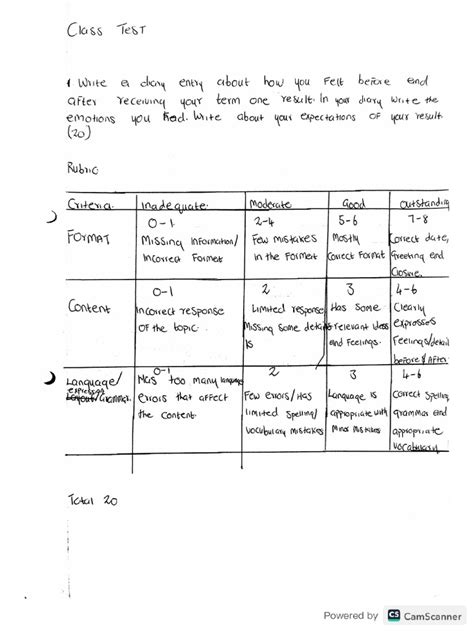 Class Test
1 Write a diary entry about how you felt before and
after receiving your term one result. In your diary write the
emotions you had. Write about your expectations of your result
(20)
Rubric
Criteria. Inadequate. Moderate Good Outstanding
FORMAT 0-1 2-4 5-6 7-8
Missing Information/ Few mistakes Mostly Correct date,
Incorrect Format in the Format Correct Format Greeting and
Closure.
Content 0-1 2 3 4-6
Incorrect response Limited response Has some Clearly
of the topic. Missing some details relevant ideas expresses
and Feelings. Feelings/detail
before & After
Language/ 0-1 2 3 4-6
Has too many language Few errors/Has Language is Correct Spelling,
Grammar. errors that affect limited spelling/ appropriate with grammar and
the content. vocabulary mistakes Minor Mistakes appropriate
vocabulary
Total 20
Powered by CS CamScanner